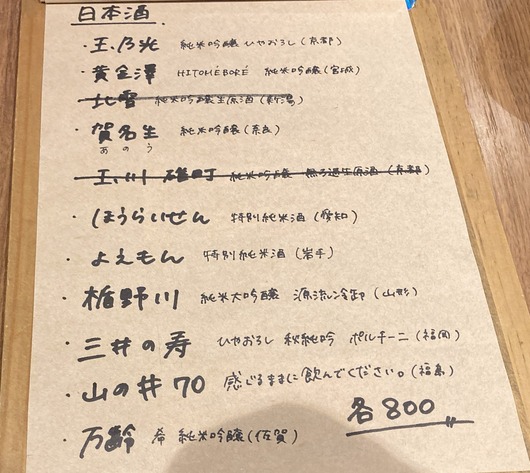 日本酒
・玉乃光 純米吟醸 ひやおろし(京都)
・黄金澤 HITOMÉBORÉ 純米吟醸(宮城)
北雪 純米吟醸生原酒(新潟)
・賀名生 純米吟醸(奈良)
あのう
・玉川 純米吟醸 無ろ過生原酒(京都)
・ほうらいせん 特別純米酒(愛知)
・よえもん 特別純米酒(岩手)
・楯野川 純米大吟醸 源流冷卸(山形)
・三井の寿 ひやおろし 秋純吟 ポルチーニ(福岡)
・山の井70 感じるままに飲んでください。(福島)
・万齢 希 純米吟醸(佐賀)
各800